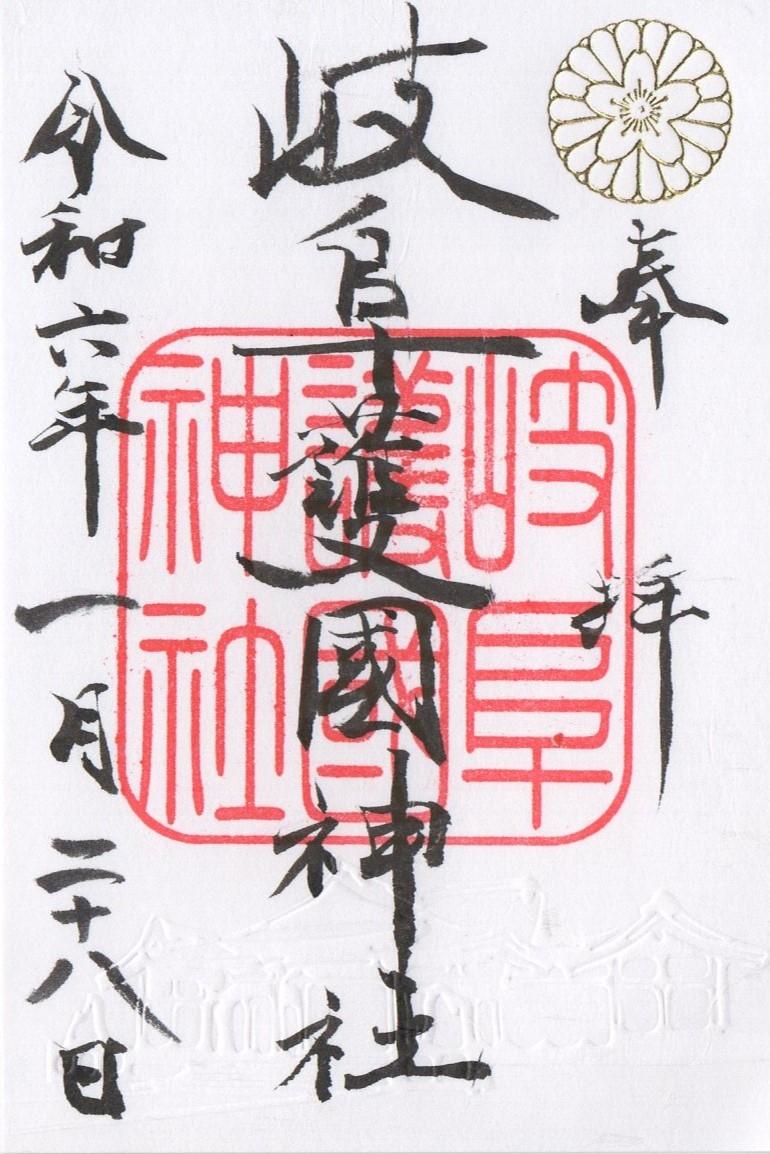 奉拝
岐阜護國神社
岐阜
護國
神社
令和六年一月二十八日